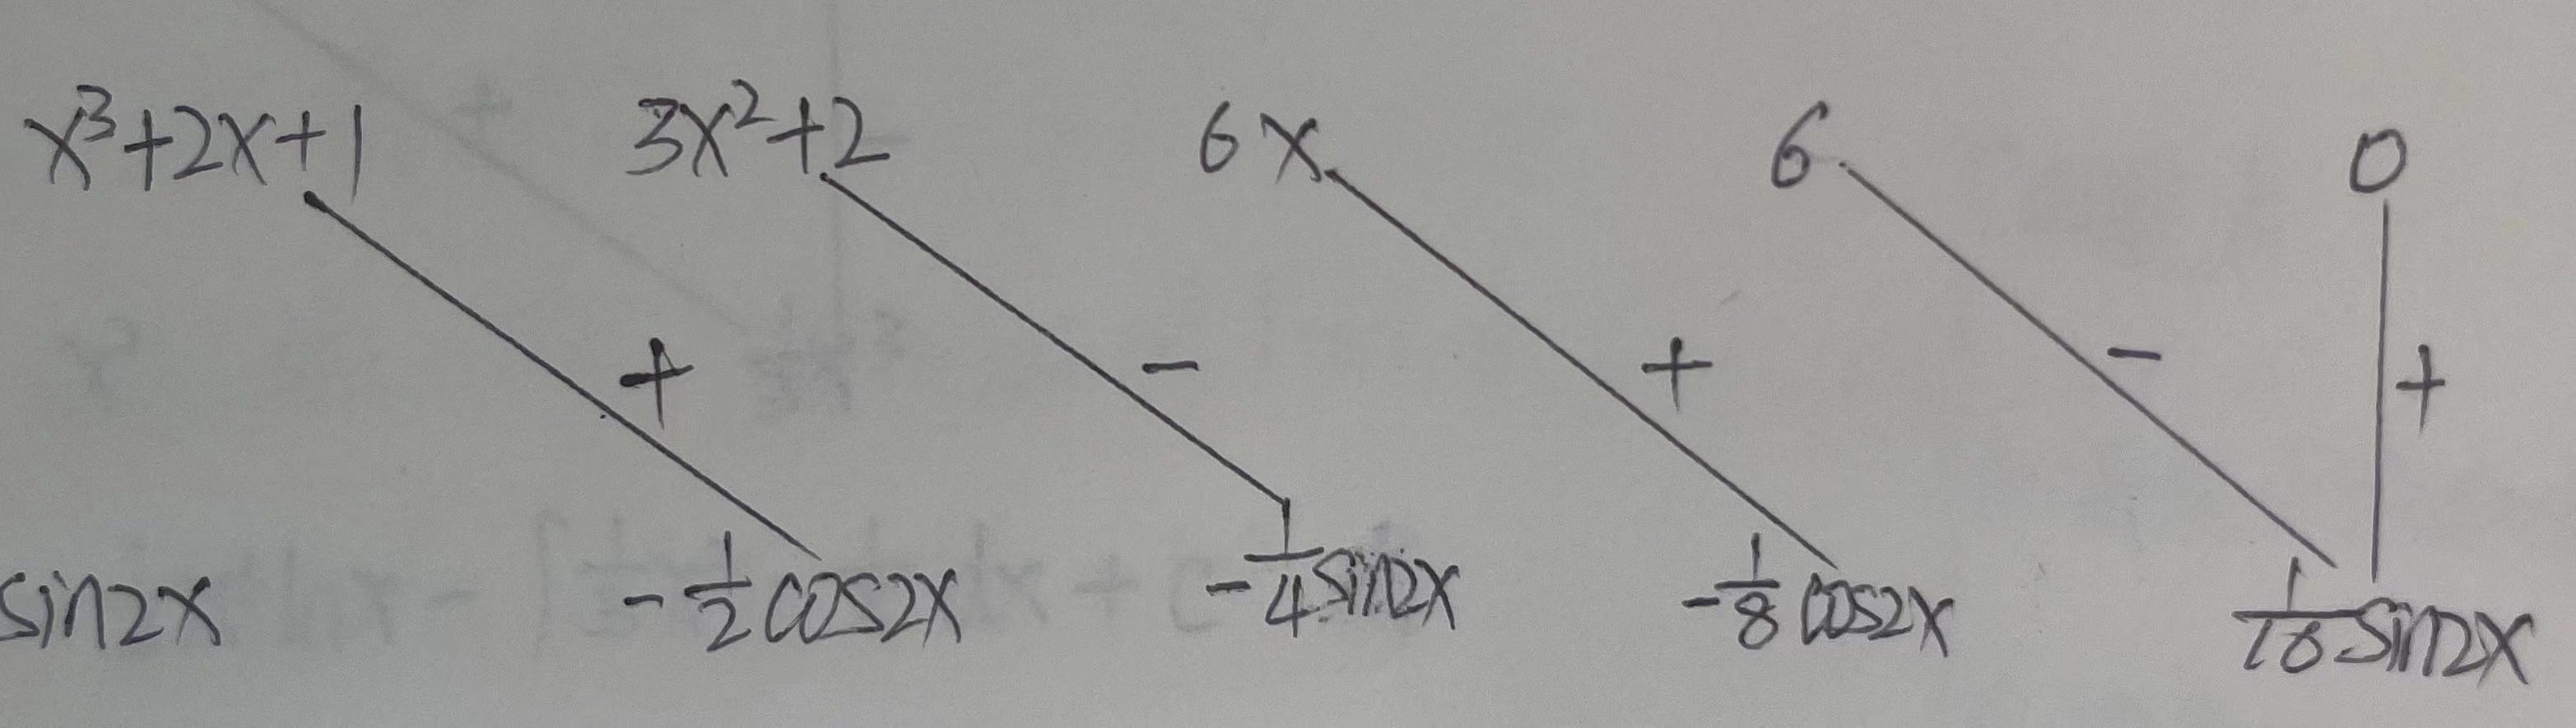 x³+2x+1 3x²+2 6x 6 0
+ - + - +
sin2x -1/2 cos2x -1/4 sin2x -1/8 cos2x 1/16 sin2x